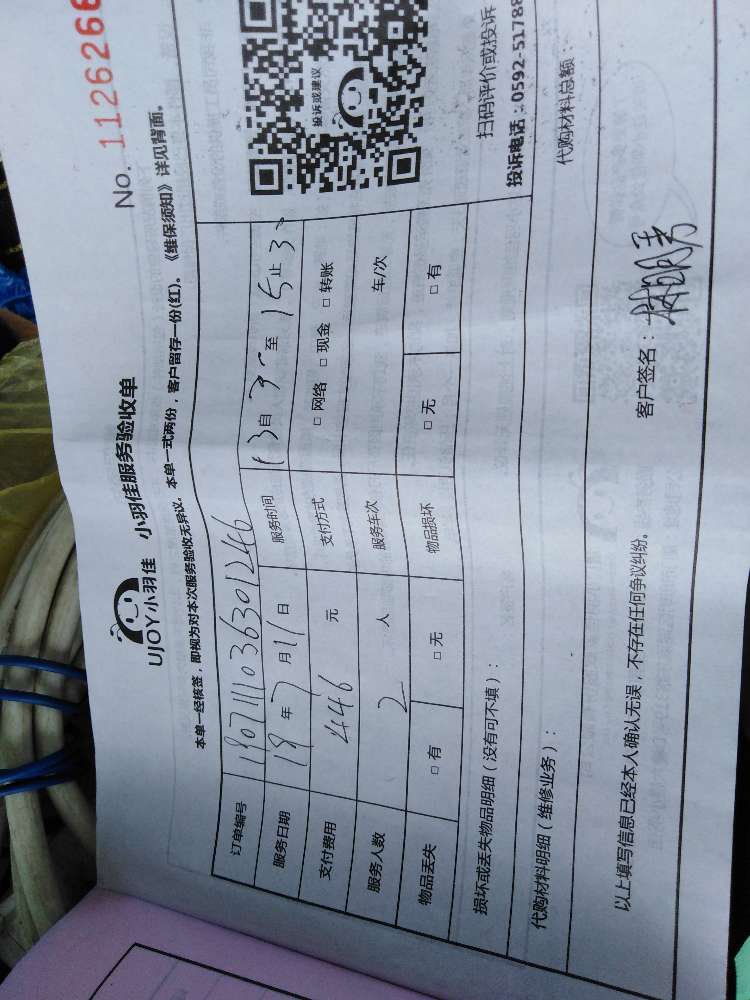 No. 1126266
UJOY小羽佳 小羽佳服务验收单
本单一经核签，即视为对本次服务验收无异议。本单一式两份，客户留存一份(红)。《维保须知》详见背面。
订单编号
服务日期 18年7月11日 服务时间 13自30至15止30
支付费用 446 元 支付方式 □网络 □现金 □转账
服务人数 2 人 服务车次 车/次
物品丢失 □有 □无 物品损坏 □无 □有
投诉或建议
扫码评价或投诉
投诉电话：0592-51788
损坏或丢失物品明细（没有可不填）：
代购材料明细（维修业务）： 代购材料总额：
以上填写信息已经本人确认无误，不存在任何争议纠纷。 客户签名：